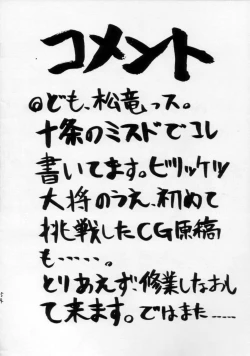 コメント
@ども、松竜っス。
十条のミスドでコレ
書いてます。ビリッケツ
大将のうえ、初めて
挑戦したCG原稿
も‥‥‥。
とりあえず、修業しなおし
て来ます。ではまた‥‥‥